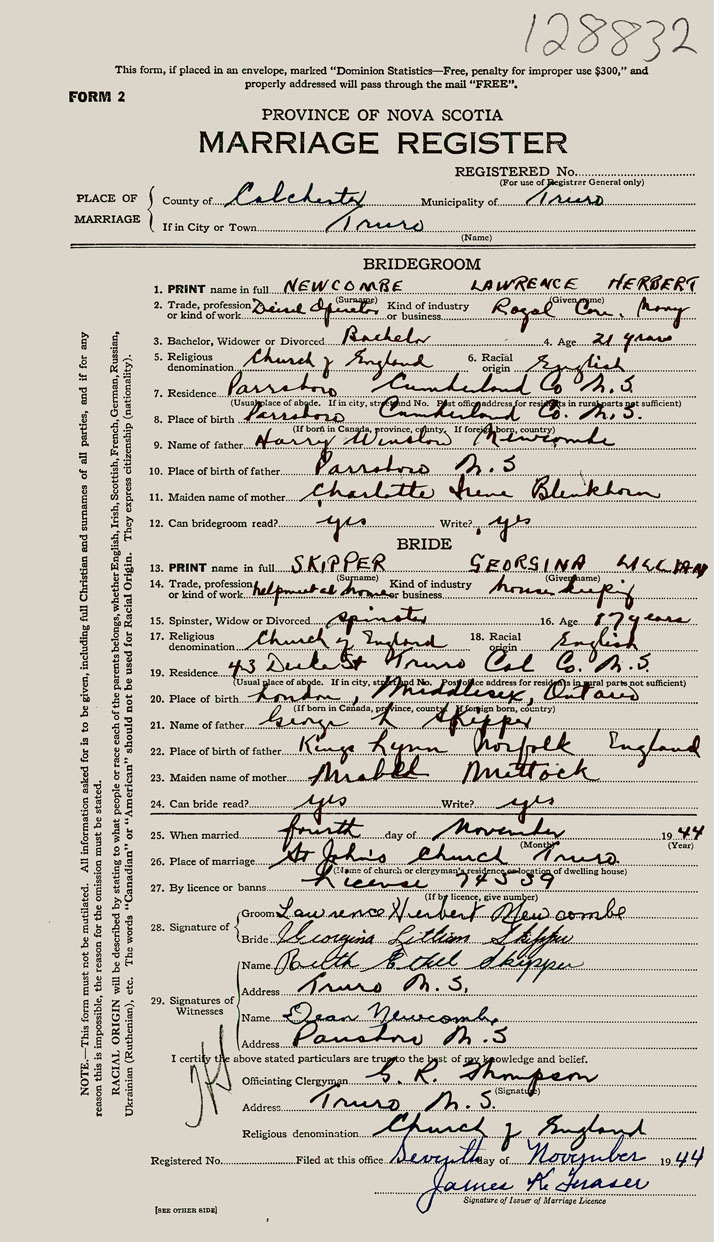 128832
This form, if placed in an envelope, marked "Dominion Statistics—Free, penalty for improper use $300," and
properly addressed will pass through the mail "FREE".
FORM 2
PROVINCE OF NOVA SCOTIA
MARRIAGE REGISTER
REGISTERED No.
(For use of Registrar General only)
PLACE OF MARRIAGE
County of Colchester Municipality of Truro
If in City or Town Truro
(Name)
BRIDEGROOM
1. PRINT name in full NEWCOMBE LAWRENCE HERBERT
(Surname) (Given name)
2. Trade, profession or kind of work Diesel Operator Kind of industry or business Royal Can. Navy
3. Bachelor, Widower or Divorced Bachelor 4. Age 21 years
5. Religious denomination Church of England 6. Racial origin English
7. Residence Parrsboro Cumberland Co N.S.
(Usual place of abode. If in city, street and No. Post office address for residents in rural parts not sufficient)
8. Place of birth Parrsboro Cumberland Co. N.S.
(If born in Canada, province, county. If foreign born, country)
9. Name of father Harry Winston Newcombe
10. Place of birth of father Parrsboro N.S
11. Maiden name of mother Charlotte Irene Blenkhorn
12. Can bridegroom read? yes Write? yes
BRIDE
13. PRINT name in full SKIPPER GEORGINA LILLIAN
(Surname) (Given name)
14. Trade, profession or kind of work help mut at home Kind of industry or business house keeping
15. Spinster, Widow or Divorced spinster 16. Age 17 years
17. Religious denomination Church of England 18. Racial origin English
19. Residence 43 Duke St Truro Col Co. N.S.
(Usual place of abode. If in city, street and No. Post office address for residents in rural parts not sufficient)
20. Place of birth London, Middlesex, Ontario
(If born in Canada, province, county. If foreign born, country)
21. Name of father George L Skipper
22. Place of birth of father Kings Lynn Norfolk England
23. Maiden name of mother Mittock
24. Can bride read? yes Write? yes
25. When married fourth day of November 1944
(Month) (Year)
26. Place of marriage St John's Church Truro
(Name of church or clergyman's residence or location of dwelling house)
27. By licence or banns License 74559
(If by licence, give number)
28. Signature of
Groom Lawrence Herbert Newcombe
Bride Georgina Lillian Skipper
29. Signatures of Witnesses
Name Ethel Skipper
Address Truro N.S.
Name Dean Newcombe
Address Parrsboro N.S
I certify the above stated particulars are true to the best of my knowledge and belief.
Officiating Clergyman G. R. Thompson
(Signature)
Address Truro N.S.
Religious denomination Church of England
Registered No. Filed at this office Seventh day of November 1944
James K. Fraser
Signature of Issuer of Marriage Licence
[SEE OTHER SIDE]
NOTE.—This form must not be mutilated. All information asked for is to be given, including full Christian and surnames of all parties, and if for any
reason this is impossible, the reason for the omission must be stated.
RACIAL ORIGIN will be described by stating to what people or race each of the parents belongs, whether English, Irish, Scottish, French, German, Russian,
Ukrainian (Ruthenian), etc. The words "Canadian" or "American" should not be used for Racial Origin. They express citizenship (nationality).